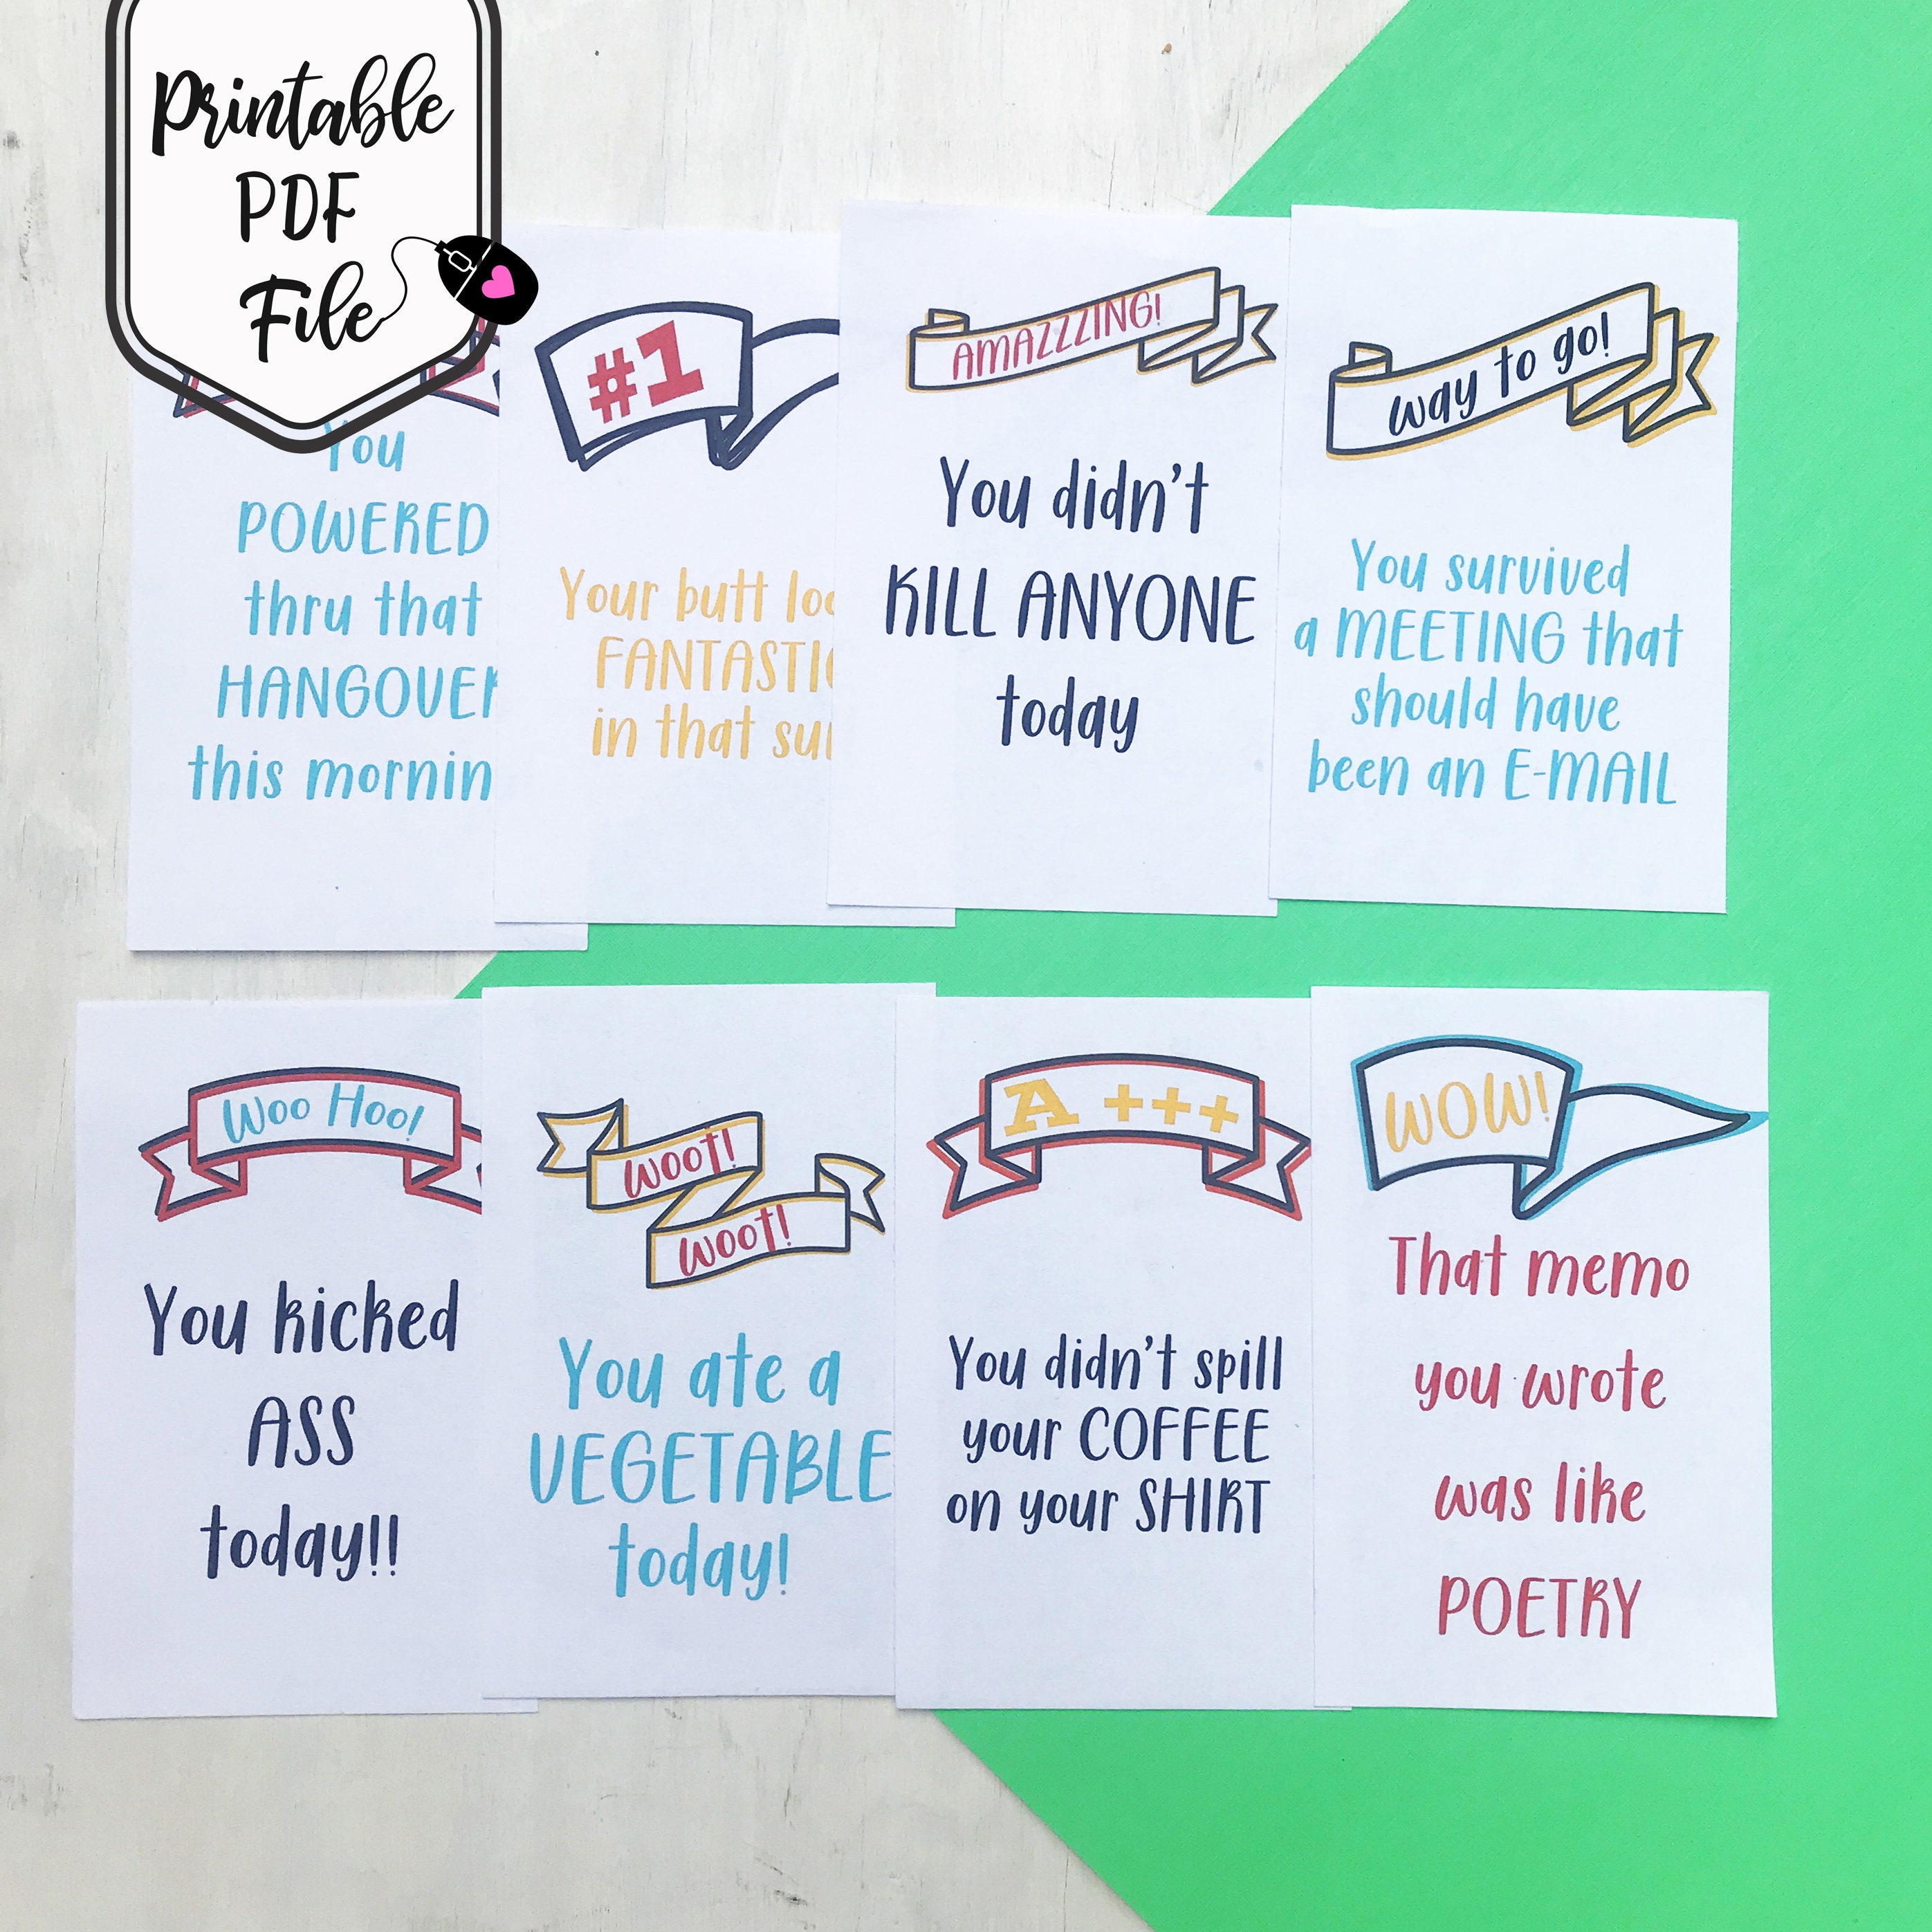 Printable
PDF
File
You
POWERED
thru that
HANGOVER
this mornin
#1
Your butt
FANTASTIC
in that
AMAZZZING!
You didn't
KILL ANYONE
today
way to go!
You survived
a MEETING that
should have
been an E-MAIL
Woo Hoo!
You kicked
ASS
today!!
WOOT!
WOOT!
You ate a
VEGETABLE
today!
A +++
You didn't spill
your COFFEE
on your SHIRT
WOW!
That memo
you wrote
was like
POETRY